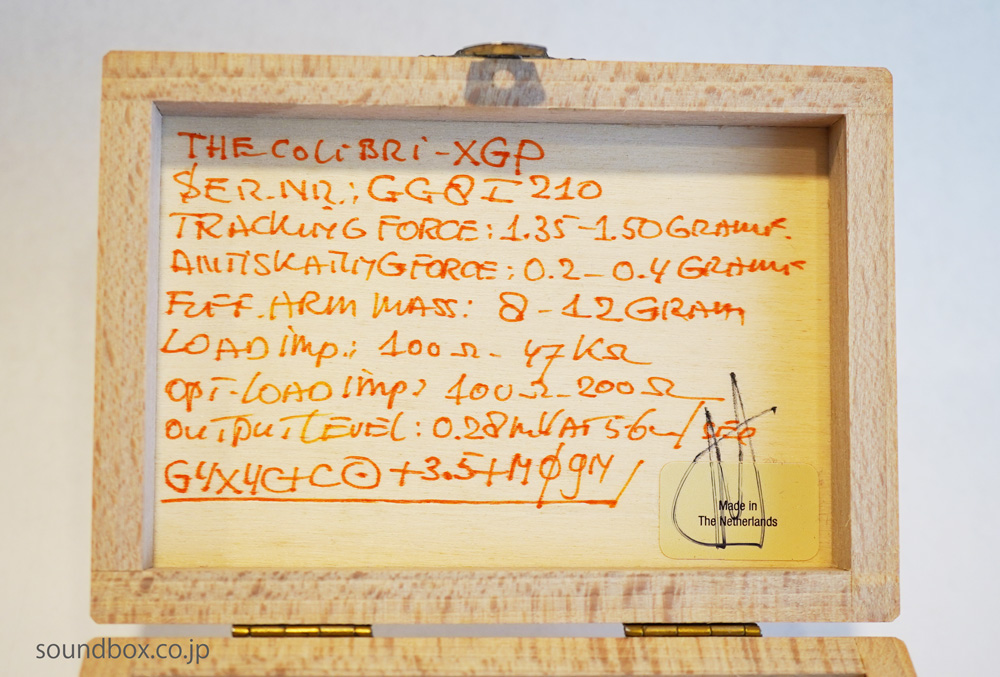 THE COLIBRI-XGP
SER.NR.: GG8I210
TRACKING FORCE: 1.35-1.50 GRAMS.
ANTISKATING FORCE: 0.2-0.4 GRAMS
EFF. ARM MASS: 8-12 GRAM
LOAD imp.: 100Ω- 47KΩ
OPT-LOAD imp: 100Ω-200Ω
OUTPUT LEVEL: 0.28mV AT 5.6cm/sec
Made in
The Netherlands
soundbox.co.jp